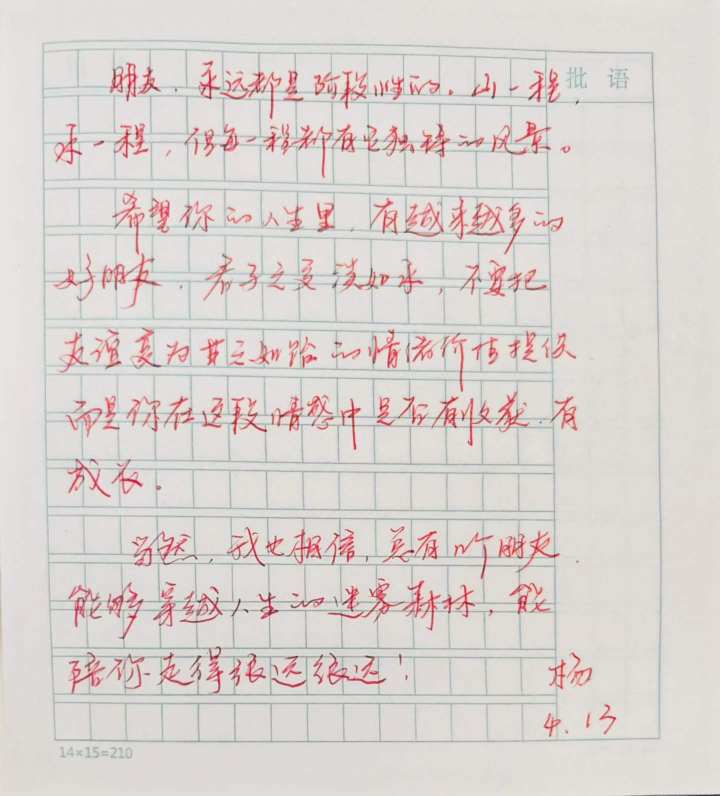 朋友，永远都是阶段性的。山一程，
批语
水一程，但每一程都有它独特的风景。
希望你的人生里，有越来越多的
好朋友，君子之交淡如水，不要把
友谊变为甘之如饴的情绪价值提供
而是你在这段情感中是否有收获，有
成长。
当然，我也相信，总有个朋友
能够穿越人生的迷雾森林，能
陪你走得很远很远！
杨
4.13
14×15=210